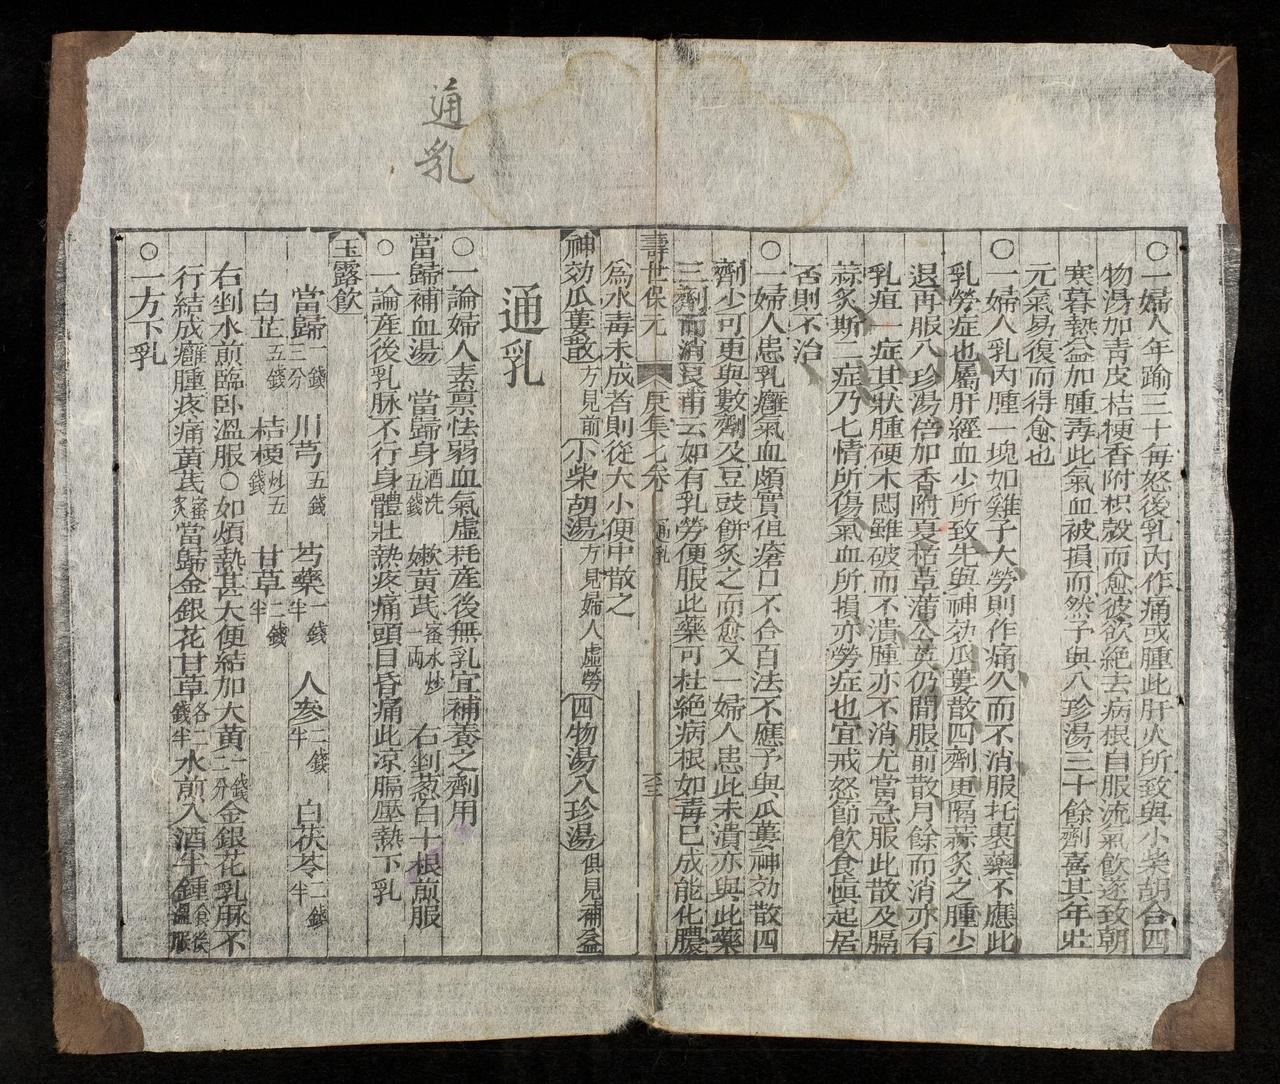 通乳
○一婦人年踰三十每怒後乳內作痛或腫此肝火所致與小柴胡合四
物湯加青皮桔梗香附枳殼而愈彼欲絕去病根自服流氣飲遂致朝
寒暮熱益加腫毒此氣血被損而然予與八珍湯三十餘劑喜其年壯
元氣易復而得愈也
○一婦人乳內腫一塊如雞子大勞則作痛久而不消服托裏藥不應此
乳勞症也屬肝經血少所致先與神効瓜蔞散四劑更隔蒜炙之腫少
退再服八珍湯倍加香附夏枯草蒲公英仍間服前散月餘而消亦有
乳疽一症其狀腫硬木悶雖破而不潰腫亦不消尤當急服此散及膈
蒜炙斯二症乃七情所傷氣血所損亦勞症也宜戒怒節飲食慎起居
否則不治
○一婦人患乳癰氣血頗實但瘡口不合百法不應予與瓜蔞神効散四
劑少可更與數劑及豆豉餅炙之而愈又一婦人患此未潰亦與此藥
三劑而消良甫云如有乳勞便服此藥可杜絕病根如毒已成能化膿
壽世保元 庚集七卷 通乳
為水毒未成者則從大小便中散之
神効瓜蔞散方見前 小柴胡湯方見婦人虛勞 四物湯八珍湯俱見補益
通乳
○一論婦人素禀怯弱血氣虛耗產後無乳宜補養之劑用
當歸補血湯 當歸身酒洗五錢 嫩黃芪蜜水炒一兩 右剉葱白十根煎服
○一論產後乳脉不行身體壯熱疼痛頭目昏痛此凉膈壓熱下乳
玉露飲
當歸一錢二分 川芎五錢 芍藥一錢半 人參二錢半 白茯苓二錢半
白芷五錢 桔梗炒五錢 甘草二錢半
右剉水煎臨臥溫服○如煩熱甚大便結加大黃一錢二分金銀花乳脉不
行結成癰腫疼痛黃芪蜜炙當歸金銀花甘草各二錢半水煎入酒半鍾食後溫服
○一方下乳